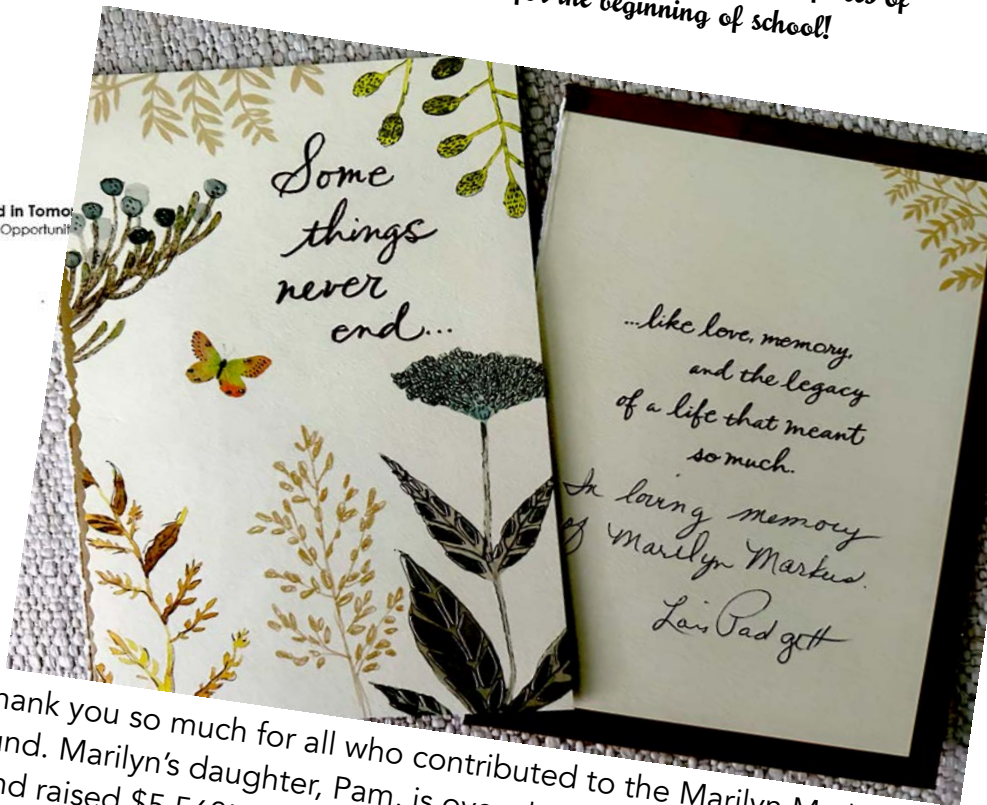 the beginning of school!
d in Tomo
Opportunit
Some
things
never
end...
...like love, memory,
and the legacy
of a life that meant
so much.
In loving memory
of Marilyn Markus.
Lois Padgett
hank you so much for all who contributed to the Marilyn M
und. Marilyn's daughter, Pam, is
nd raised